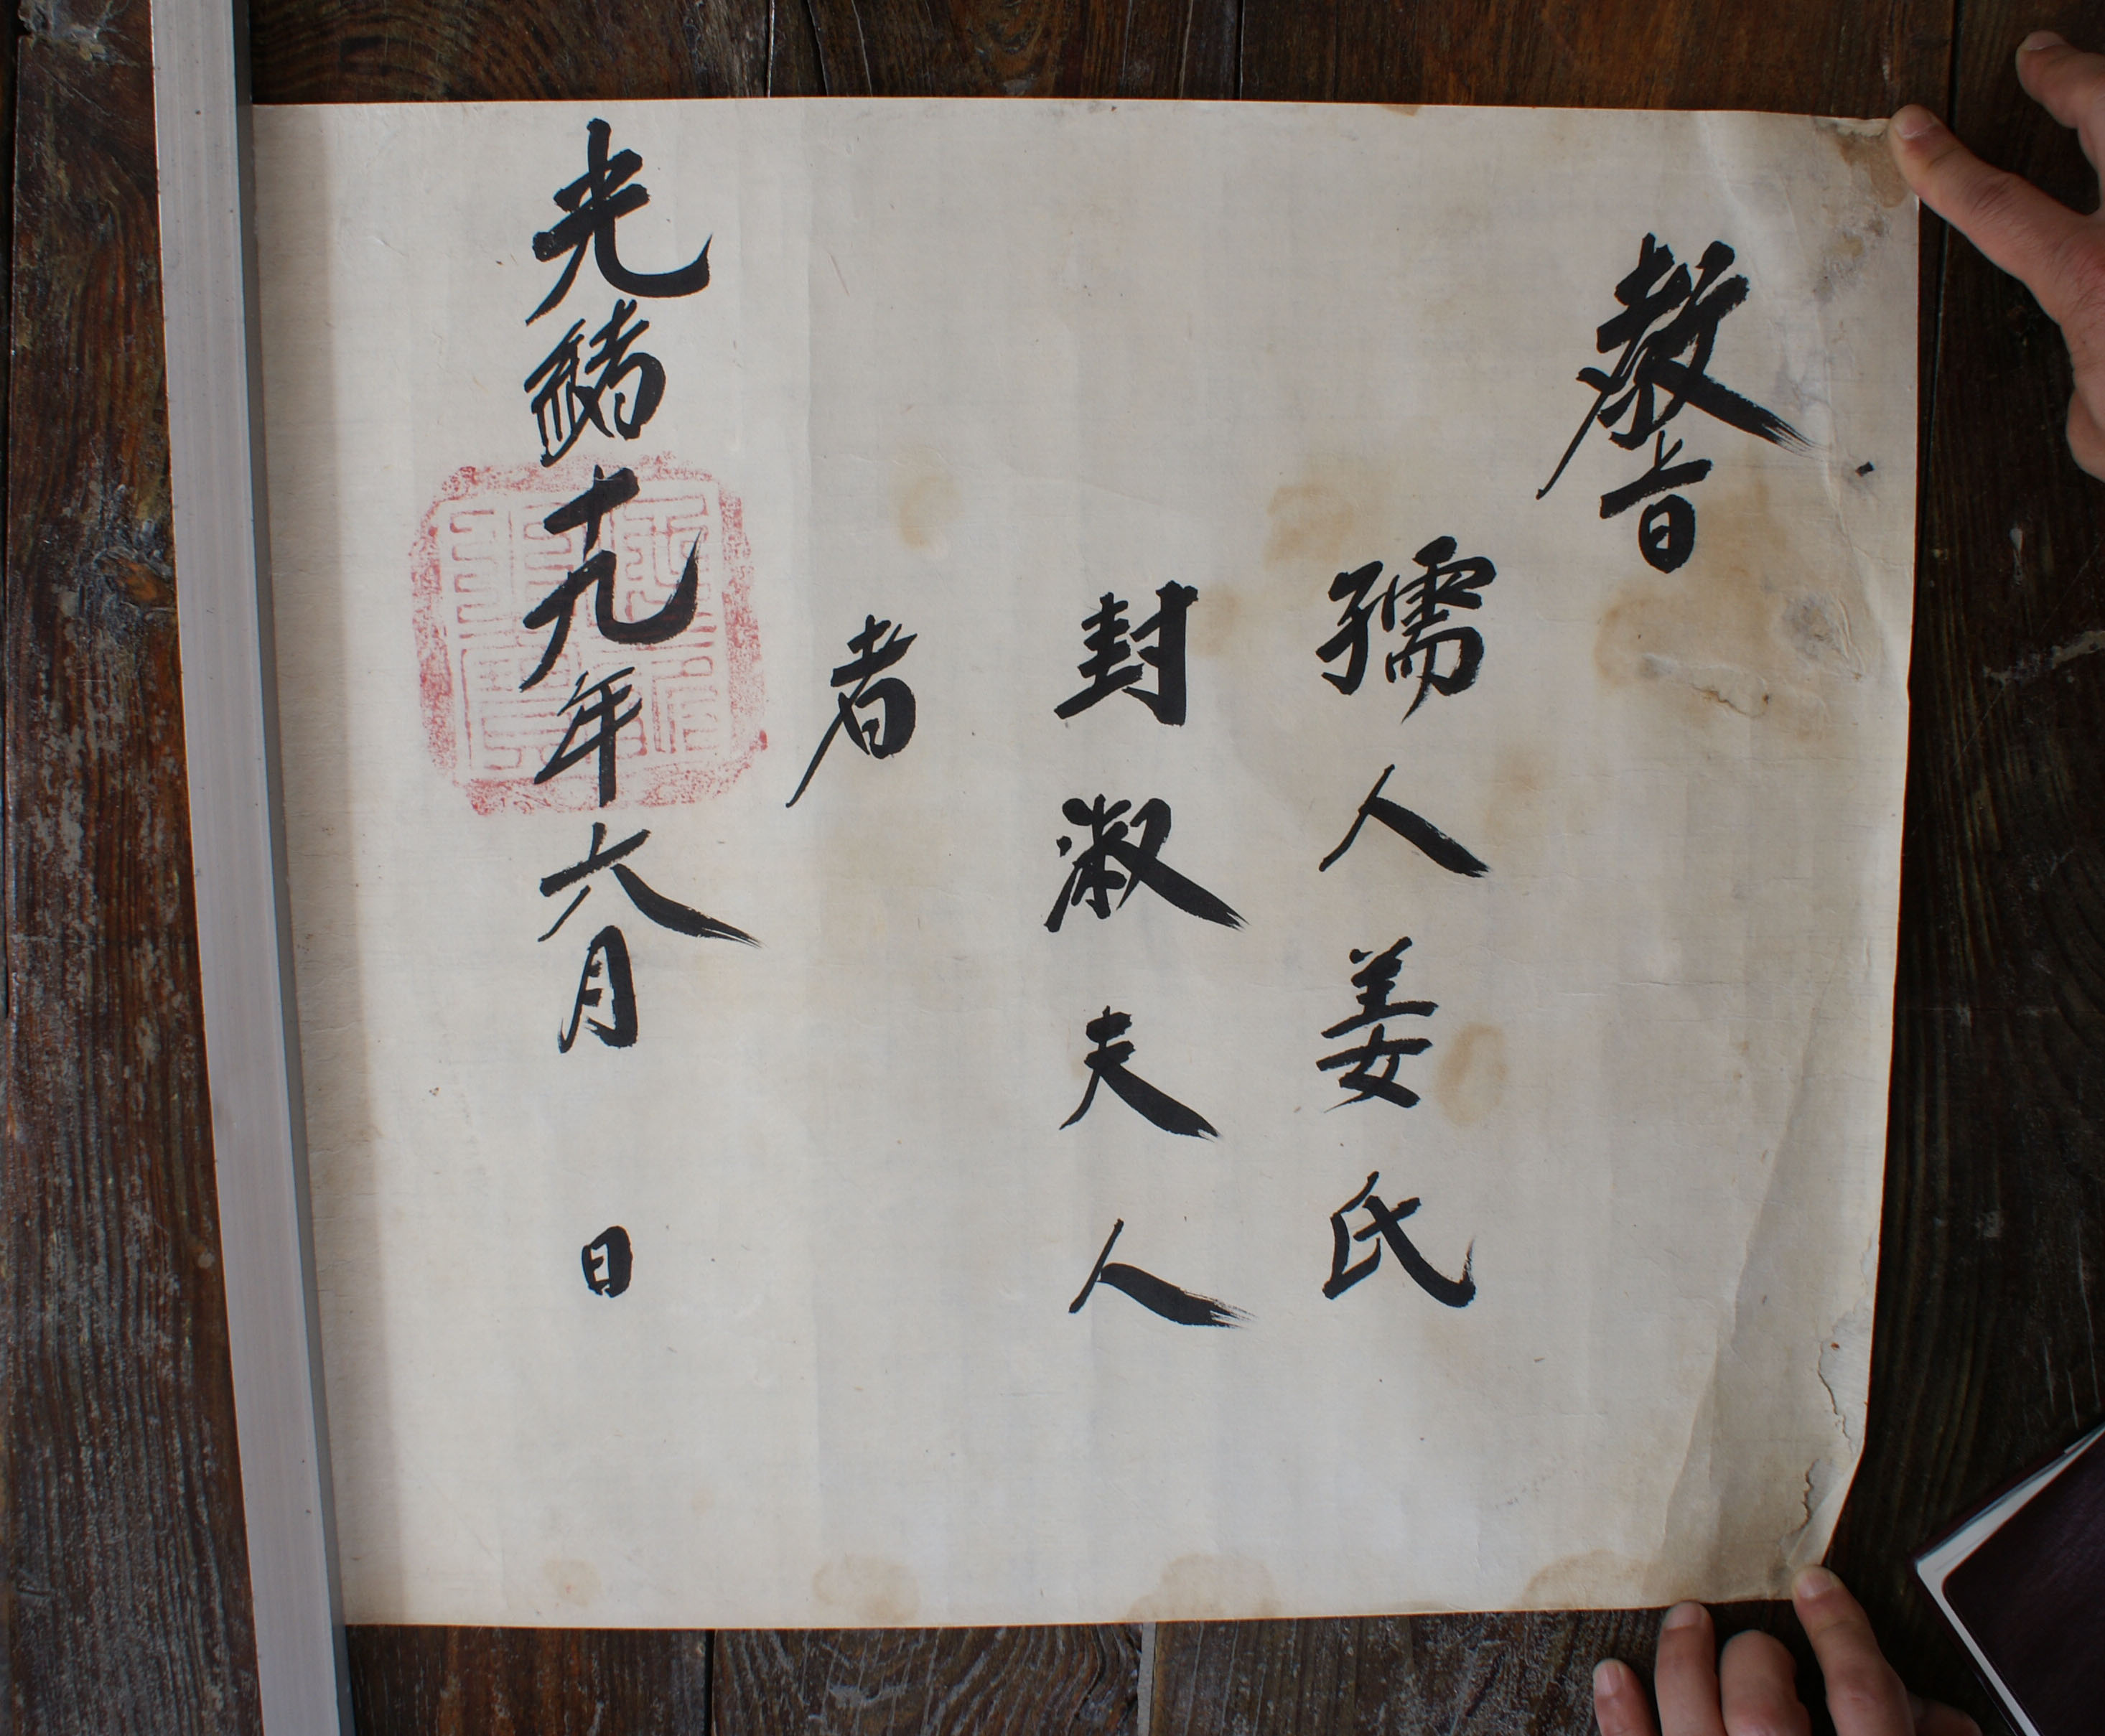 敎旨
孺人姜氏
封淑夫人
者
光緖十九年六月 日